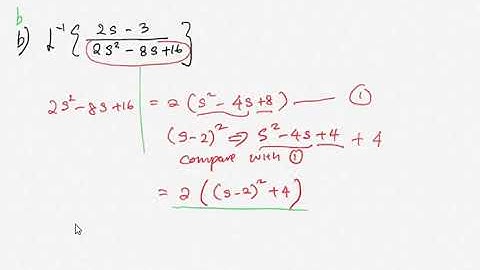 b
b) L⁻¹ { (2s - 3) / (2s² - 8s + 16) }
2s² - 8s + 16 = 2 (s² - 4s + 8) —— ①
(s-2)² ⇒ s² - 4s + 4 + 4
compare with ①
= 2 ( (s-2)² + 4 )